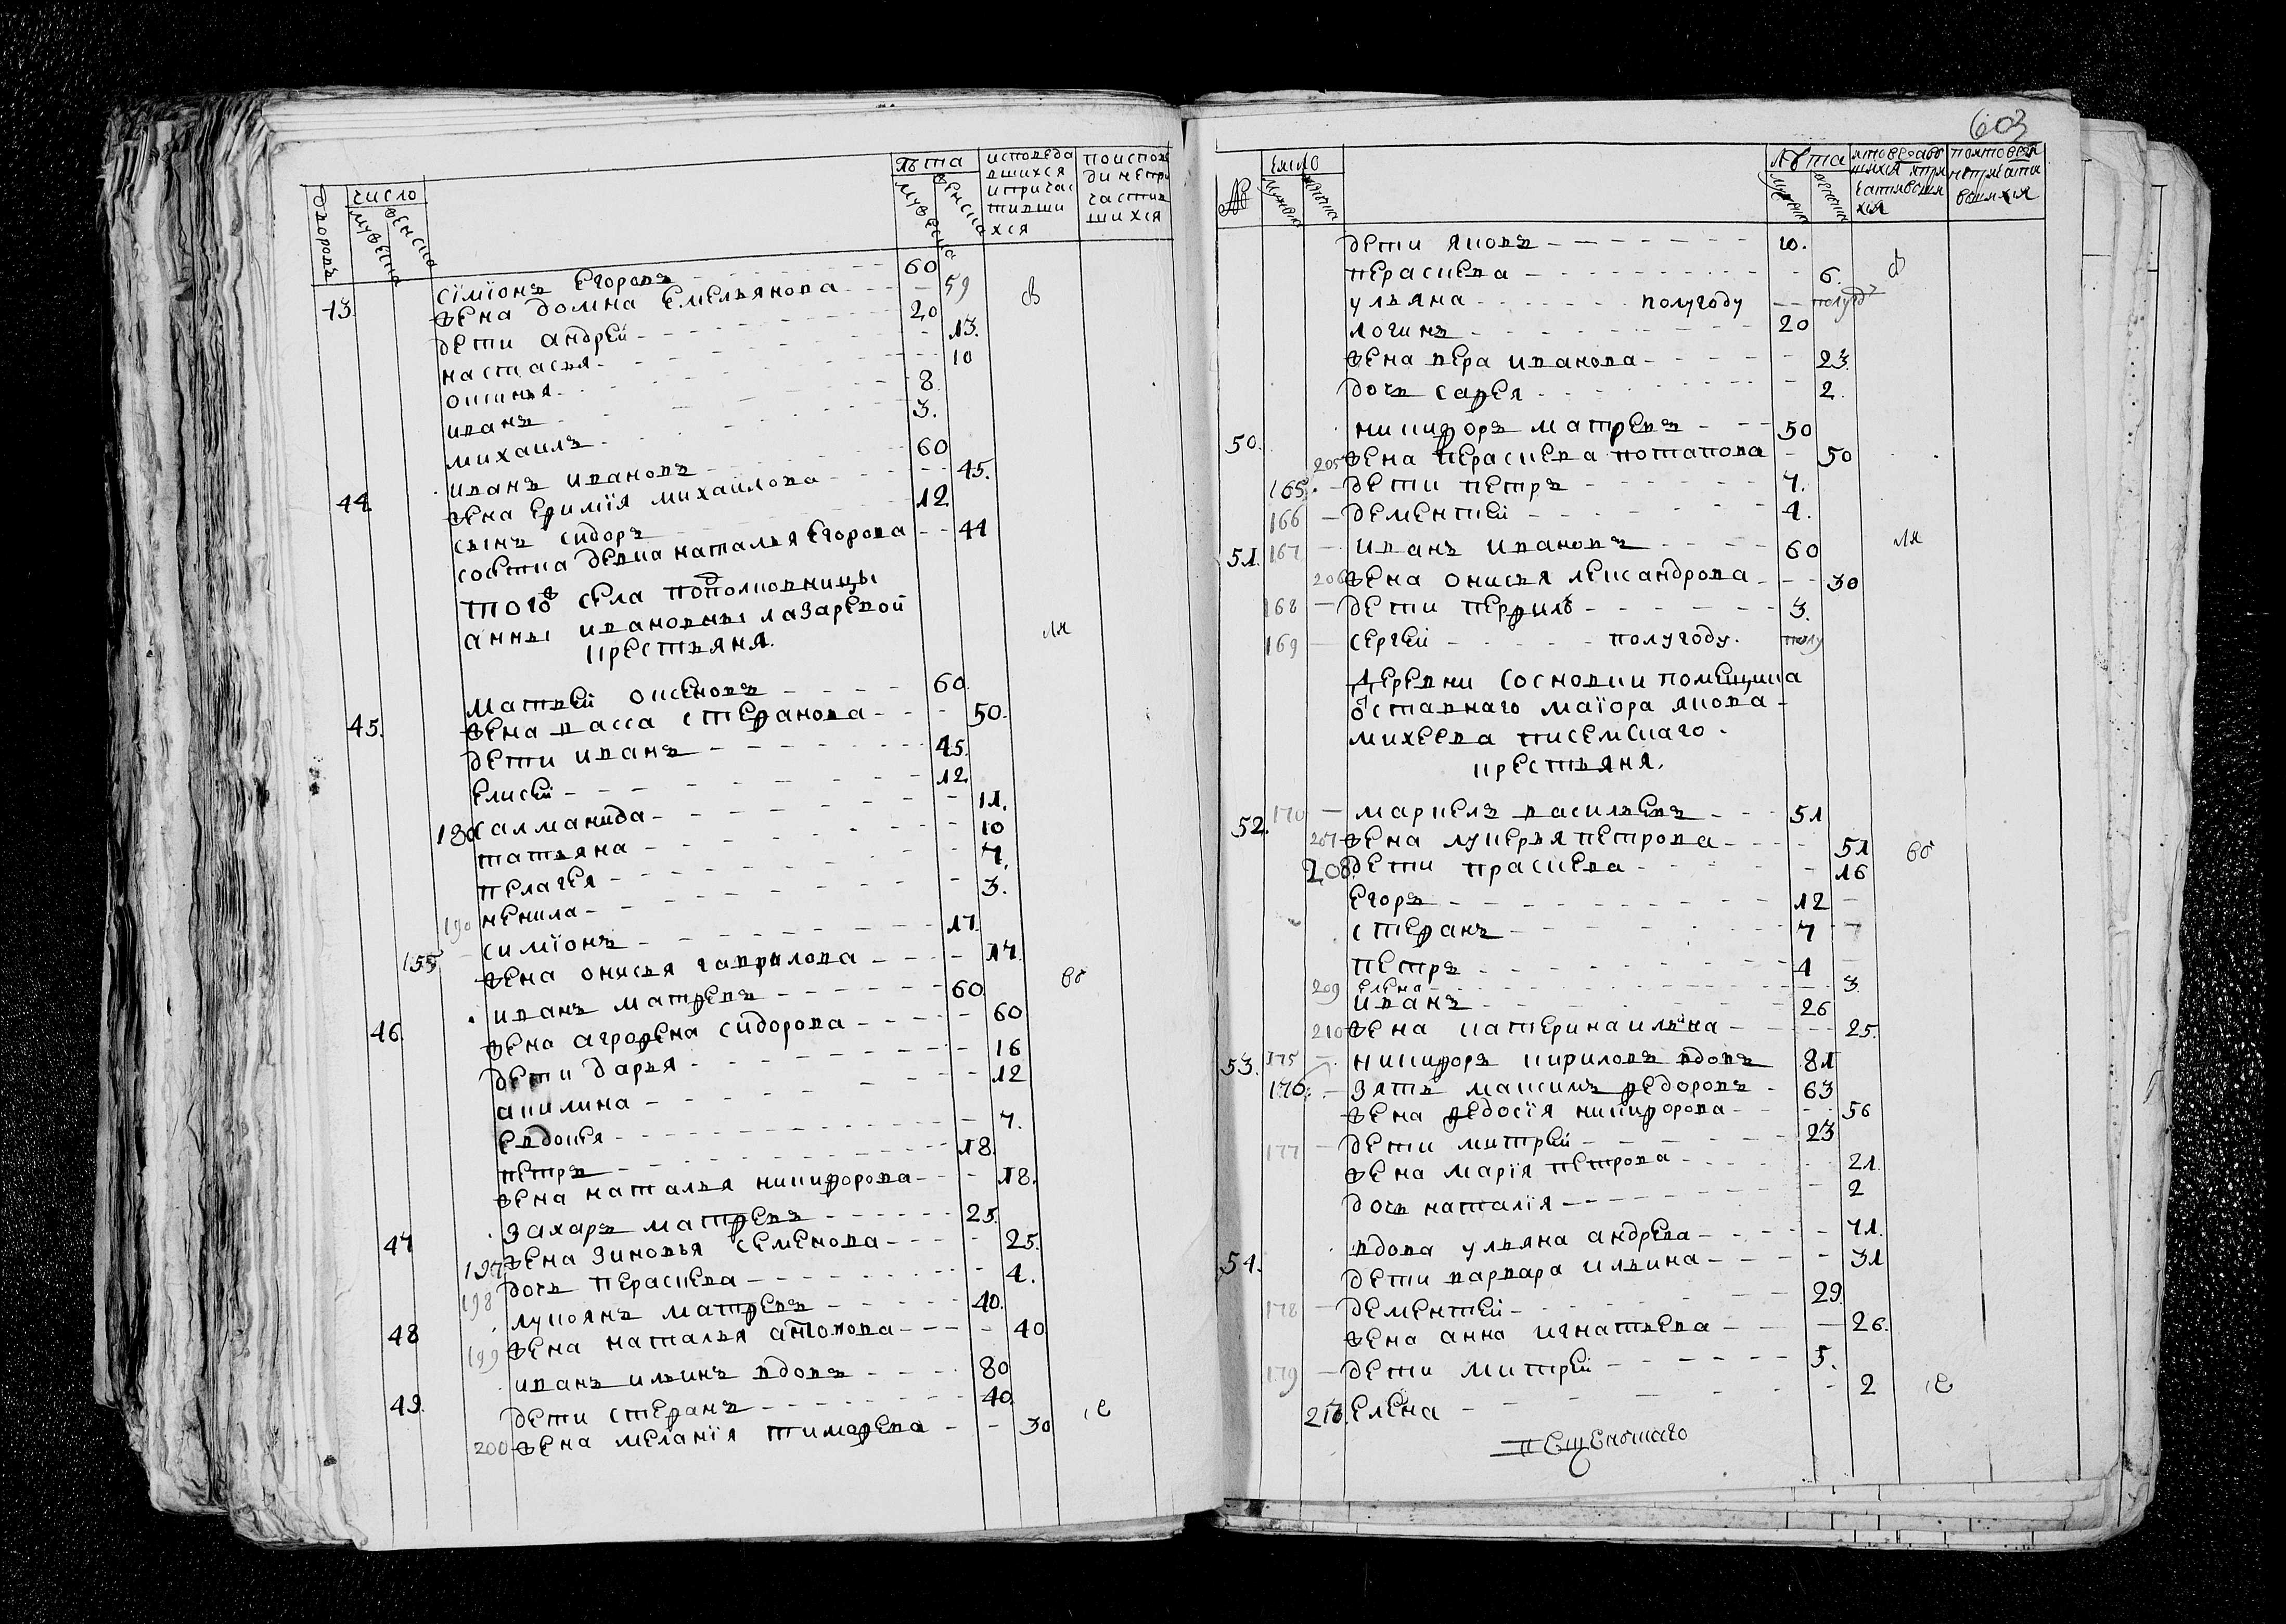 дворовъ
число
мужеска
женска
лѣта
мужеска
женска
исповеда
вшихся
и причас
тивши
хся
по испов
ди не при
частив
шихся
43 сїмїонъ егоровъ 60
жена домна емельянова 59
дети андрей 20
настасья 13.
оксинья 10
иванъ 8
михаилъ 3.
44 иванъ ивановъ 60
жена ефимїя михаилова 45.
сынъ сидоръ 12
солтка девка наталья егорова 41
того села подполковницы
анны ивановны лазаревой
крестьяня.
45. матвей оксеновъ 60
жена васса стефанова 50.
дети иванъ 15.
елисей 12
салманида 11.
татьяна 10
пелагея 7.
190 ненила 3.
155 симїонъ 17.
жена онисья гаврилова 17.
46. иванъ матвевъ 60
жена агрофена сидорова 60
дети дарья 16
акилина 12
евдокея 7.
петръ 18.
жена наталья никифорова 18.
47 захаръ матвевъ 25.
197 жена зиновья семенова 25.
198 дочь пераскева 4.
48 лукоянъ матвевъ 40.
199 жена наталья антонова 40
49. иванъ ильинъ вдовъ 80
дети стефанъ 40
200 жена меланїя тимофева 30
603
число
лѣта
дети яковъ 10.
пераскева 6.
ульяна полугоду
логинъ 20
жена вера иванова 23.
дочь софея 2.
50. никифоръ матвевъ 50
205 жена пераскева потапова 50
165. дети петръ 7.
166 дементей 4.
51. 167 иванъ ивановъ 60
206 жена онисья лександрова 30
168 дети перфилъ 3.
169 сергей полугоду.
деревни сосновки помещика
отставнаго маїора якова
михеева писемскаго
крестьяня.
52. 170 маркелъ васильевъ 51
207 жена лукерья петрова 51
208 дети праскева 16
егоръ 12
стефанъ 7
петръ 4
209 елена 3
иванъ 26
210 жена катерина ильина 25.
53. 175 никифоръ кириловъ вдовъ 81
176. зять максимъ федоровъ 63
жена федосїя никифорова 56
177 дети митрей 23
жена марїя петрова 21.
дочь наталїя 2
54. вдова ульяна андрева 71.
дети варвара ильина 31
178 дементей 29.
жена анна игнатьева 26.
179 дети митрей 5.
елена 2